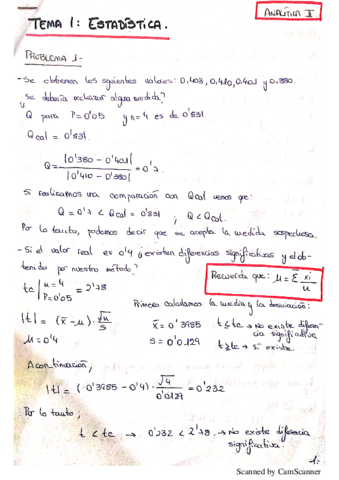 ANALÍTICA I
TEMA 1: ESTADÍSTICA.
PROBLEMA 1-
- Se obtienen los siguientes valores: 0,403, 0,410, 0,401 y 0,380
¿se debería rechazar alguna medida?
Q para P=0'05 y n=4 es de 0'831
Q cal = 0'831
Q = |0'380 - 0'401| / |0'410 - 0'380| = 0'7
Si realizamos una comparación con Qcal vemos que:
Q = 0'7 < Qcal = 0'831 ; Q < Qcal.
Por lo tanto, podemos decir que se acepta la medida sospechosa.
- Si el valor real es 0'4 ¿existen diferencias significativas y el ob-
tenido por nuestro método?
Recuerda que: μ = Σ xi / n
tc | n=4 P=0'05 = 2'78
Primero calculamos la media y la desviación:
|t| = (x̄ - μ) · √n / s
x̄ = 0'3985
t ≤ tc → No existe diferen-
cia significativa
μ = 0'4
s = 0'0129
t ≥ tc → Sí existe.
A continuación,
|t| = (0'3985 - 0'4) · √4 / 0'0129 = 0'232
Por lo tanto;
t < tc → 0'232 < 2'78 → No existe diferencia
significativa.
1.
Scanned by CamScanner